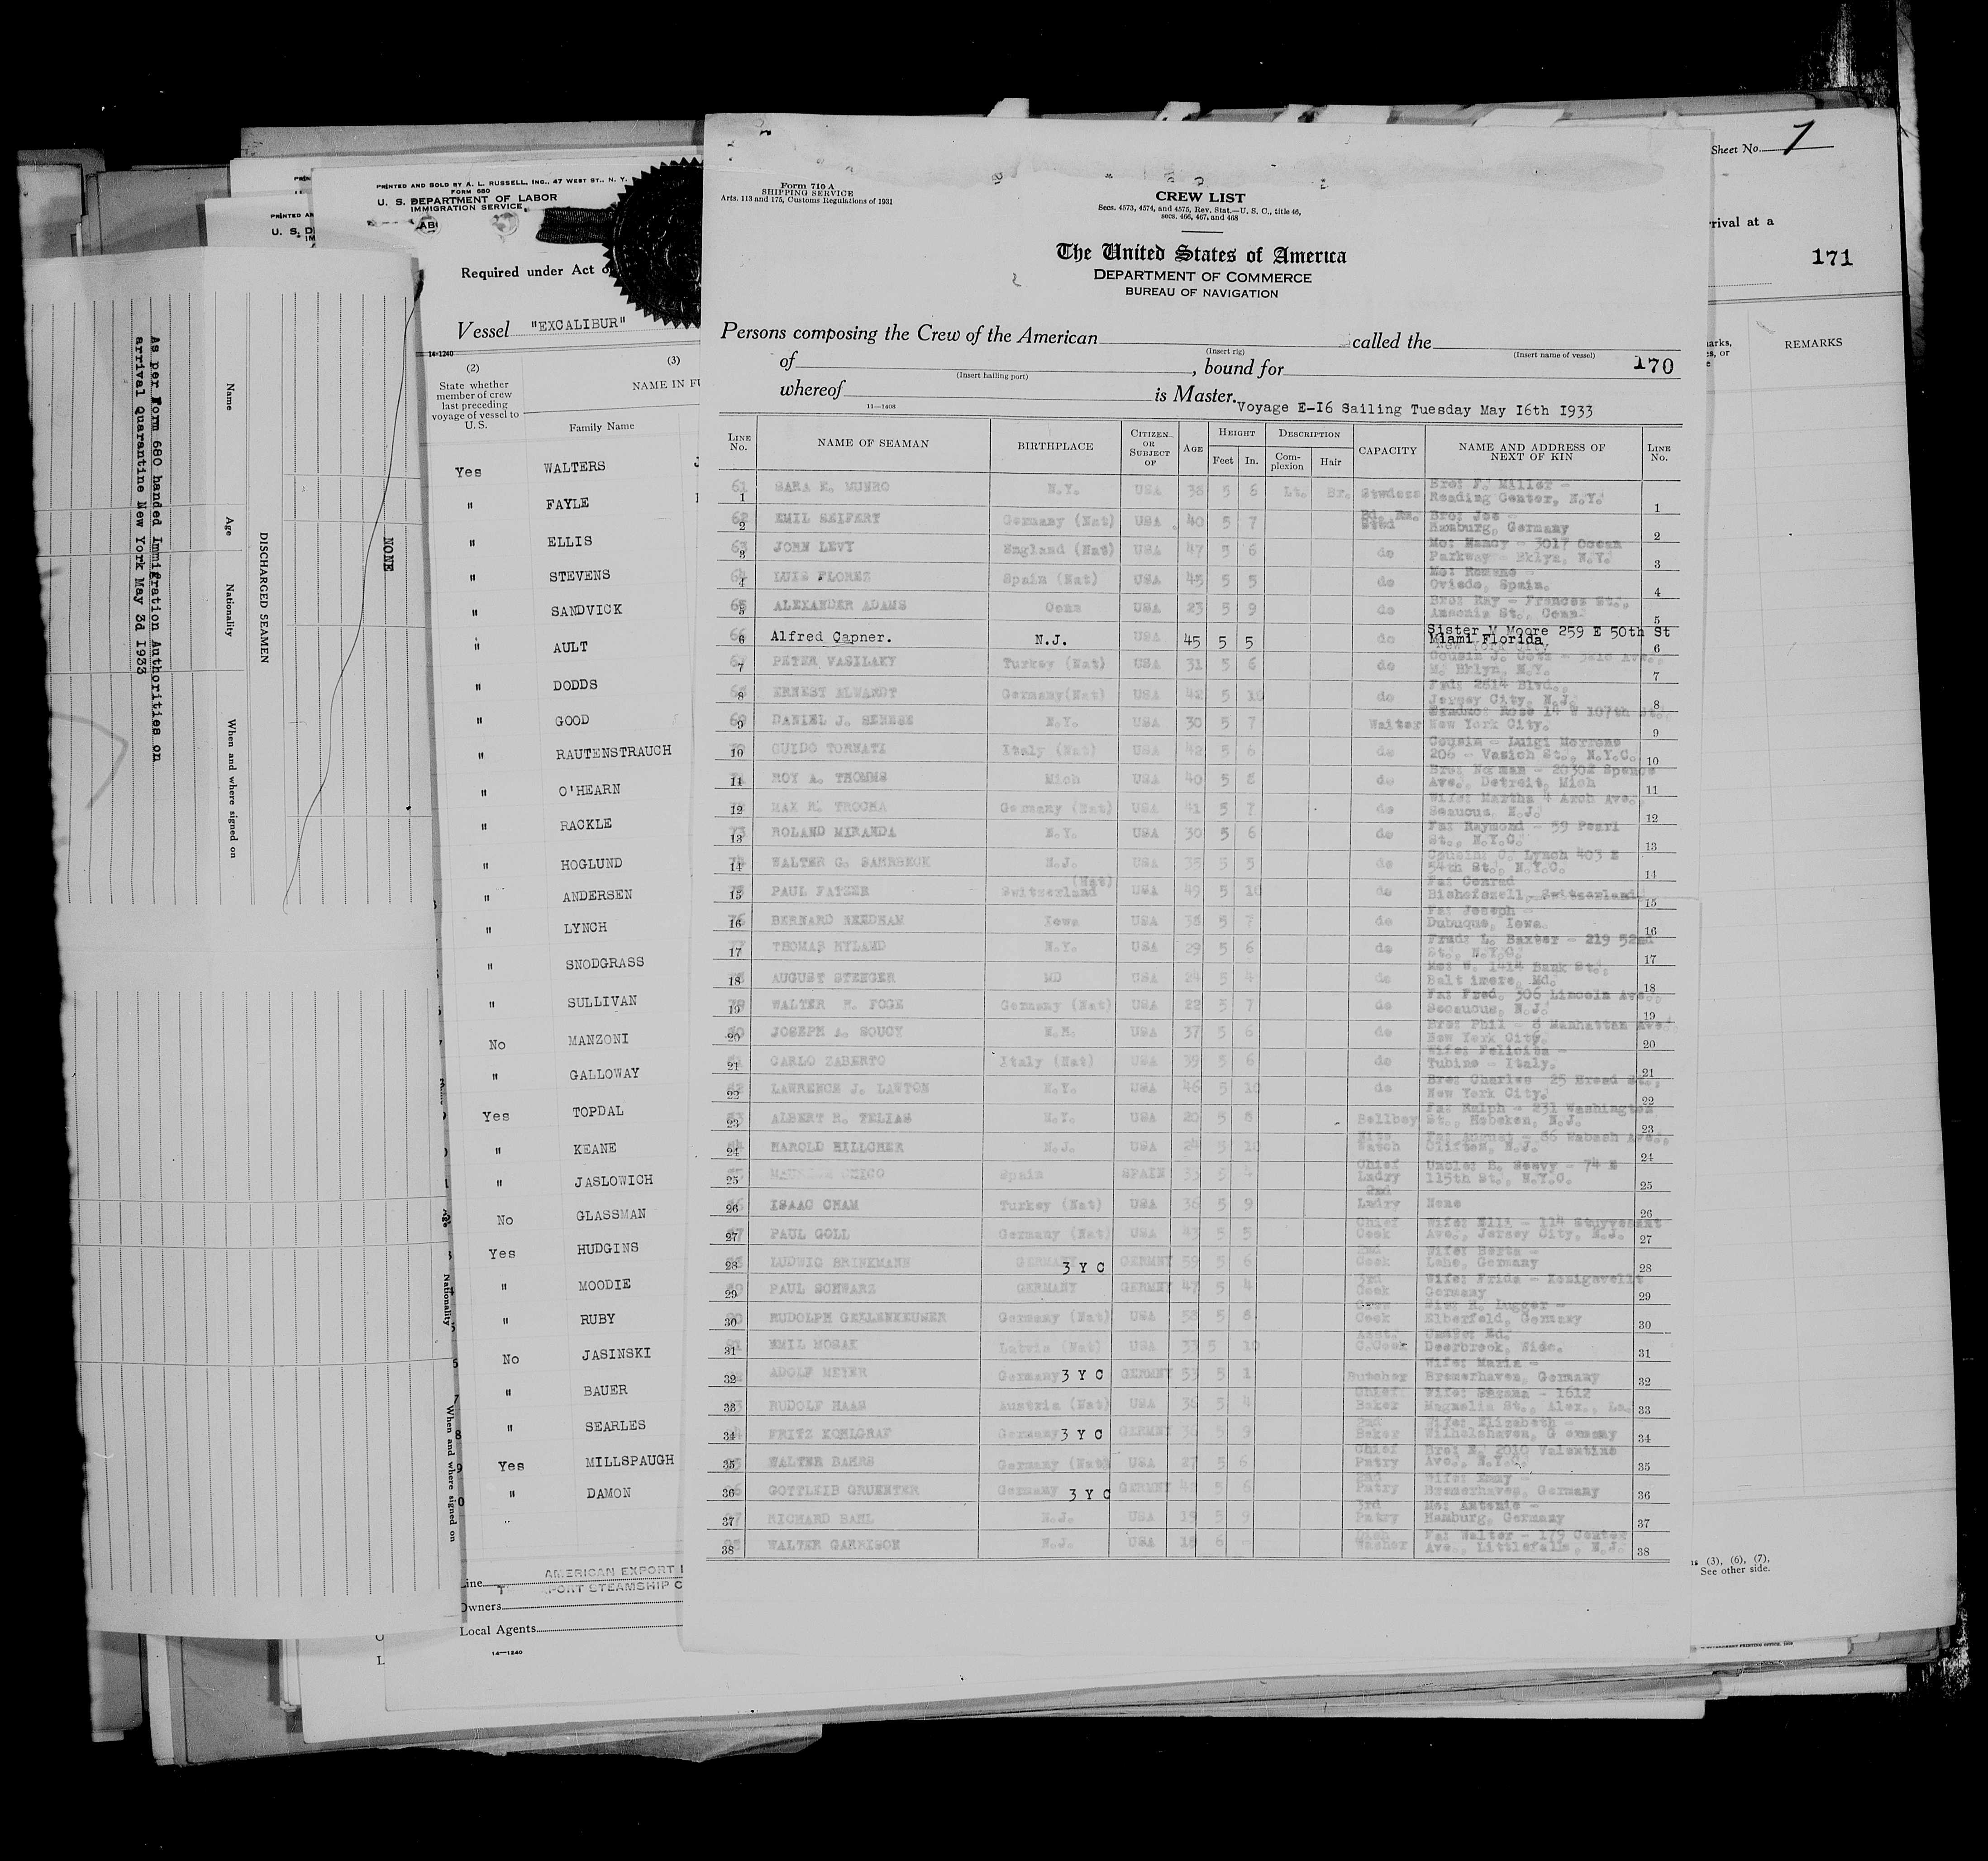 As per Form 680 handed Immigration Authorities on
arrival Quarantine New York May 3d 1933
Name
Age
Nationality
When and where signed on
DISCHARGED SEAMEN
NONE
PRINTED AND SOLD BY A. L. RUSSELL, INC., 47 WEST ST., N. Y.
FORM 680
U. S. DEPARTMENT OF LABOR
IMMIGRATION SERVICE
Required under Act
Vessel "EXCALIBUR"
14-1240
(2) (3)
State whether
member of crew
last preceding
voyage of vessel to
U. S.
Family Name
Yes WALTERS
" FAYLE
" ELLIS
" STEVENS
" SANDVICK
" AULT
" DODDS
" GOOD
" RAUTENSTRAUCH
" O'HEARN
" RACKLE
" HOGLUND
" ANDERSEN
" LYNCH
" SNODGRASS
" SULLIVAN
No MANZONI
" GALLOWAY
Yes TOPDAL
" KEANE
" JASLOWICH
No GLASSMAN
Yes HUDGINS
" MOODIE
" RUBY
No JASINSKI
" BAUER
" SEARLES
Yes MILLSPAUGH
" DAMON
AMERICAN EXPORT
Owners
Local Agents
14-1240
Nationality
When and where signed on
Form 710 A
SHIPPING SERVICE
Arts. 113 and 175, Customs Regulations of 1931
CREW LIST
Secs. 4573, 4574, and 4575, Rev. Stat.—U. S. C., title 46,
secs. 466, 467, and 468
The United States of America
DEPARTMENT OF COMMERCE
BUREAU OF NAVIGATION
Persons composing the Crew of the American called the
(Insert rig) (Insert name of vessel)
of , bound for 170
(Insert hailing port)
whereof is Master.
11-1408
Voyage E-16 Sailing Tuesday May 16th 1933
LINE No. NAME OF SEAMAN BIRTHPLACE CITIZEN OR SUBJECT OF AGE HEIGHT Feet In. DESCRIPTION Complexion Hair CAPACITY NAME AND ADDRESS OF NEXT OF KIN LINE No.
1 SARA E. MUNRO N.Y. USA 38 5 6 Lt. Br. Stwdess Bro: F. Miller - Reading Center, N.Y. 1
2 EMIL SEIFERT Germany (Nat) USA 40 5 7 Bro: Joe - Hamburg, Germany 2
3 JOHN LEVY England (Nat) USA 47 5 6 do Mo: Nancy - 3017 Ocean Parkway - Bklyn, N.Y. 3
4 LUIS FLOREZ Spain (Nat) USA 45 5 5 do Oviedo, Spain. 4
5 ALEXANDER ADAMS Conn USA 23 5 9 do Bro: Ray - Frances St., Ansonia St., Conn. 5
6 Alfred Capner. N.J. USA 45 5 5 do Sister M Moore 259 E 50th St Miami Florida New York City 6
7 PETER VASILAKY Turkey (Nat) USA 31 5 6 do Bklyn, N.Y. 7
8 ERNEST ALWARDT Germany (Nat) USA 42 5 10 do Frd: 2814 Blvd., Jersey City, N.J. 8
9 DANIEL J. SENESE N.Y. USA 30 5 7 Waiter Rose 14 W 107th St., New York City. 9
10 GUIDO TORNATI Italy (Nat) USA 42 5 6 do Cousin - Luigi 206 - Varich St., N.Y.C. 10
11 ROY A. THOMMS Mich USA 40 5 8 do Bro: Norman - Ave., Detroit, Mich 11
12 MAX R. TROCHA Germany (Nat) USA 41 5 7 do Wife: Martha 4 Arch Ave., Seaucus, N.J. 12
13 ROLAND MIRANDA N.Y. USA 30 5 6 do Fa: Raymond - 59 Pearl St., N.Y.C. 13
14 WALTER G. N.J. USA 35 5 5 do Cousin: C. Lynch 403 E 54th St., N.Y.C. 14
15 PAUL FATZER Switzerland (Nat) USA 49 5 10 do Fa: Conrad Bishofszell, Switzerland 15
16 BERNARD NEEDHAM Iowa USA 38 5 7 do Fa: Joseph - Dubuque, Iowa. 16
17 THOMAS HYLAND N.Y. USA 29 5 6 do Frnd: L. Baxter - 219 52nd St., N.Y.C. 17
18 AUGUST STENGER MD USA 24 5 4 do Mo: W. 1414 Bank St., Baltimore, Md. 18
19 WALTER H. FOGE Germany (Nat) USA 22 5 7 do Fa: Fred. 306 Lincoln Ave., Secaucus, N.J. 19
20 JOSEPH A. SOUCY N.H. USA 37 5 6 do Bro: Phil - 8 Manhattan Ave. New York City. 20
21 CARLO ZABERTO Italy (Nat) USA 39 5 6 do Wife: Felicita - Tubino - Italy. 21
22 LAWRENCE J. LAWTON N.Y. USA 46 5 10 do Bro: Charles 25 Broad St., New York City. 22
23 ALBERT R. TELIAS N.Y. USA 20 5 8 Bellboy Fa: Ralph - 231 Washington St., Hoboken, N.J. 23
24 HAROLD HILLCHER N.J. USA 24 5 10 Watch Fa: August - 86 Wabash Ave., Clifton, N.J. 24
25 Spain SPAIN 33 5 4 Chief Lndry Uncle: B. Seavy - 74 E 115th St., N.Y.C. 25
26 ISAAC CHAM Turkey (Nat) USA 36 5 9 2nd Lndry None 26
27 PAUL GOLL Germany (Nat) USA 43 5 5 Chief Cook Wife: Ella - 114 Stuyvesant Ave., Jersey City, N.J. 27
28 LUDWIG BRINKMANN GERMANY 3 Y C GERMNY 59 5 6 2nd Cook Wife: Berta - Lehe, Germany 28
29 PAUL SCHWARZ GERMANY GERMNY 47 5 4 3rd Cook Wife: Frida - Germany 29
30 RUDOLPH Germany (Nat) USA 58 5 8 Crew Cook Sis: R. Lugger - Elberfeld, Germany 30
31 EMIL MOSAK Latvia (Nat) USA 33 5 10 Asst. C.Cook Deerbrook, Wisc. 31
32 ADOLF MEYER Germany 3 Y C GERMNY 53 5 1 Butcher Wife: Maria - Bremerhaven, Germany 32
33 RUDOLF HAAS Austria (Nat) USA 36 5 4 Chief Baker Wife: Susana - 1612 Magnolia St., Alex., La. 33
34 FRITZ KOHLGRAF Germany 3 Y C GERMNY 36 5 9 2nd Baker Wife: Elizabeth - Wilhelshaven, G ermany 34
35 WALTER BAKES Germany (Nat) USA 27 5 6 Chief Patry Bro: E. 2010 Valentine Ave., N.Y.C. 35
36 GOTTLEIB GRUENTER Germany 3 Y C GERMNY 42 5 6 2nd Patry Wife: Emmy - Bremerhaven, Germany 36
37 RICHARD BAHL N.J. USA 19 5 9 3rd Patry Mo: Antonie - Hamburg, Germany 37
38 WALTER GARRISON N.J. USA 18 6 - Dish Washer Fa: Walter - 179 Center Ave., Littlefalls, N.J. 38
Sheet No. 7
rival at a
171
REMARKS
(3), (6), (7),
See other side.